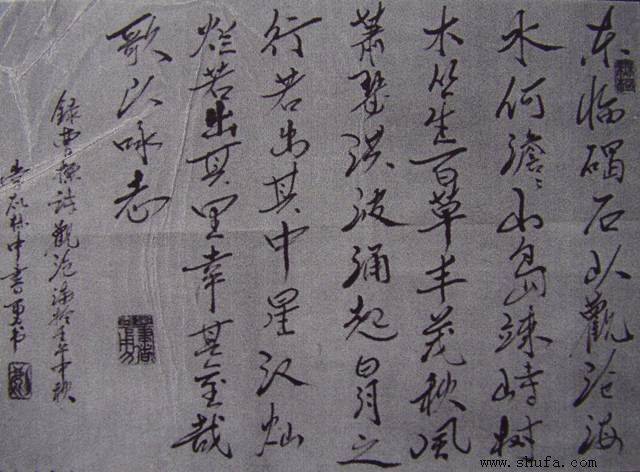 东临碣石以觀沧海
水何澹〻山岛竦峙树
木丛生百草丰茂秋風
萧瑟洪波涌起日月之
行若出其中星汉灿
烂若出其里幸甚至哉
歌以咏志
録曹操诗觀沧海於壬午中秋
林中書
www.shufa.com